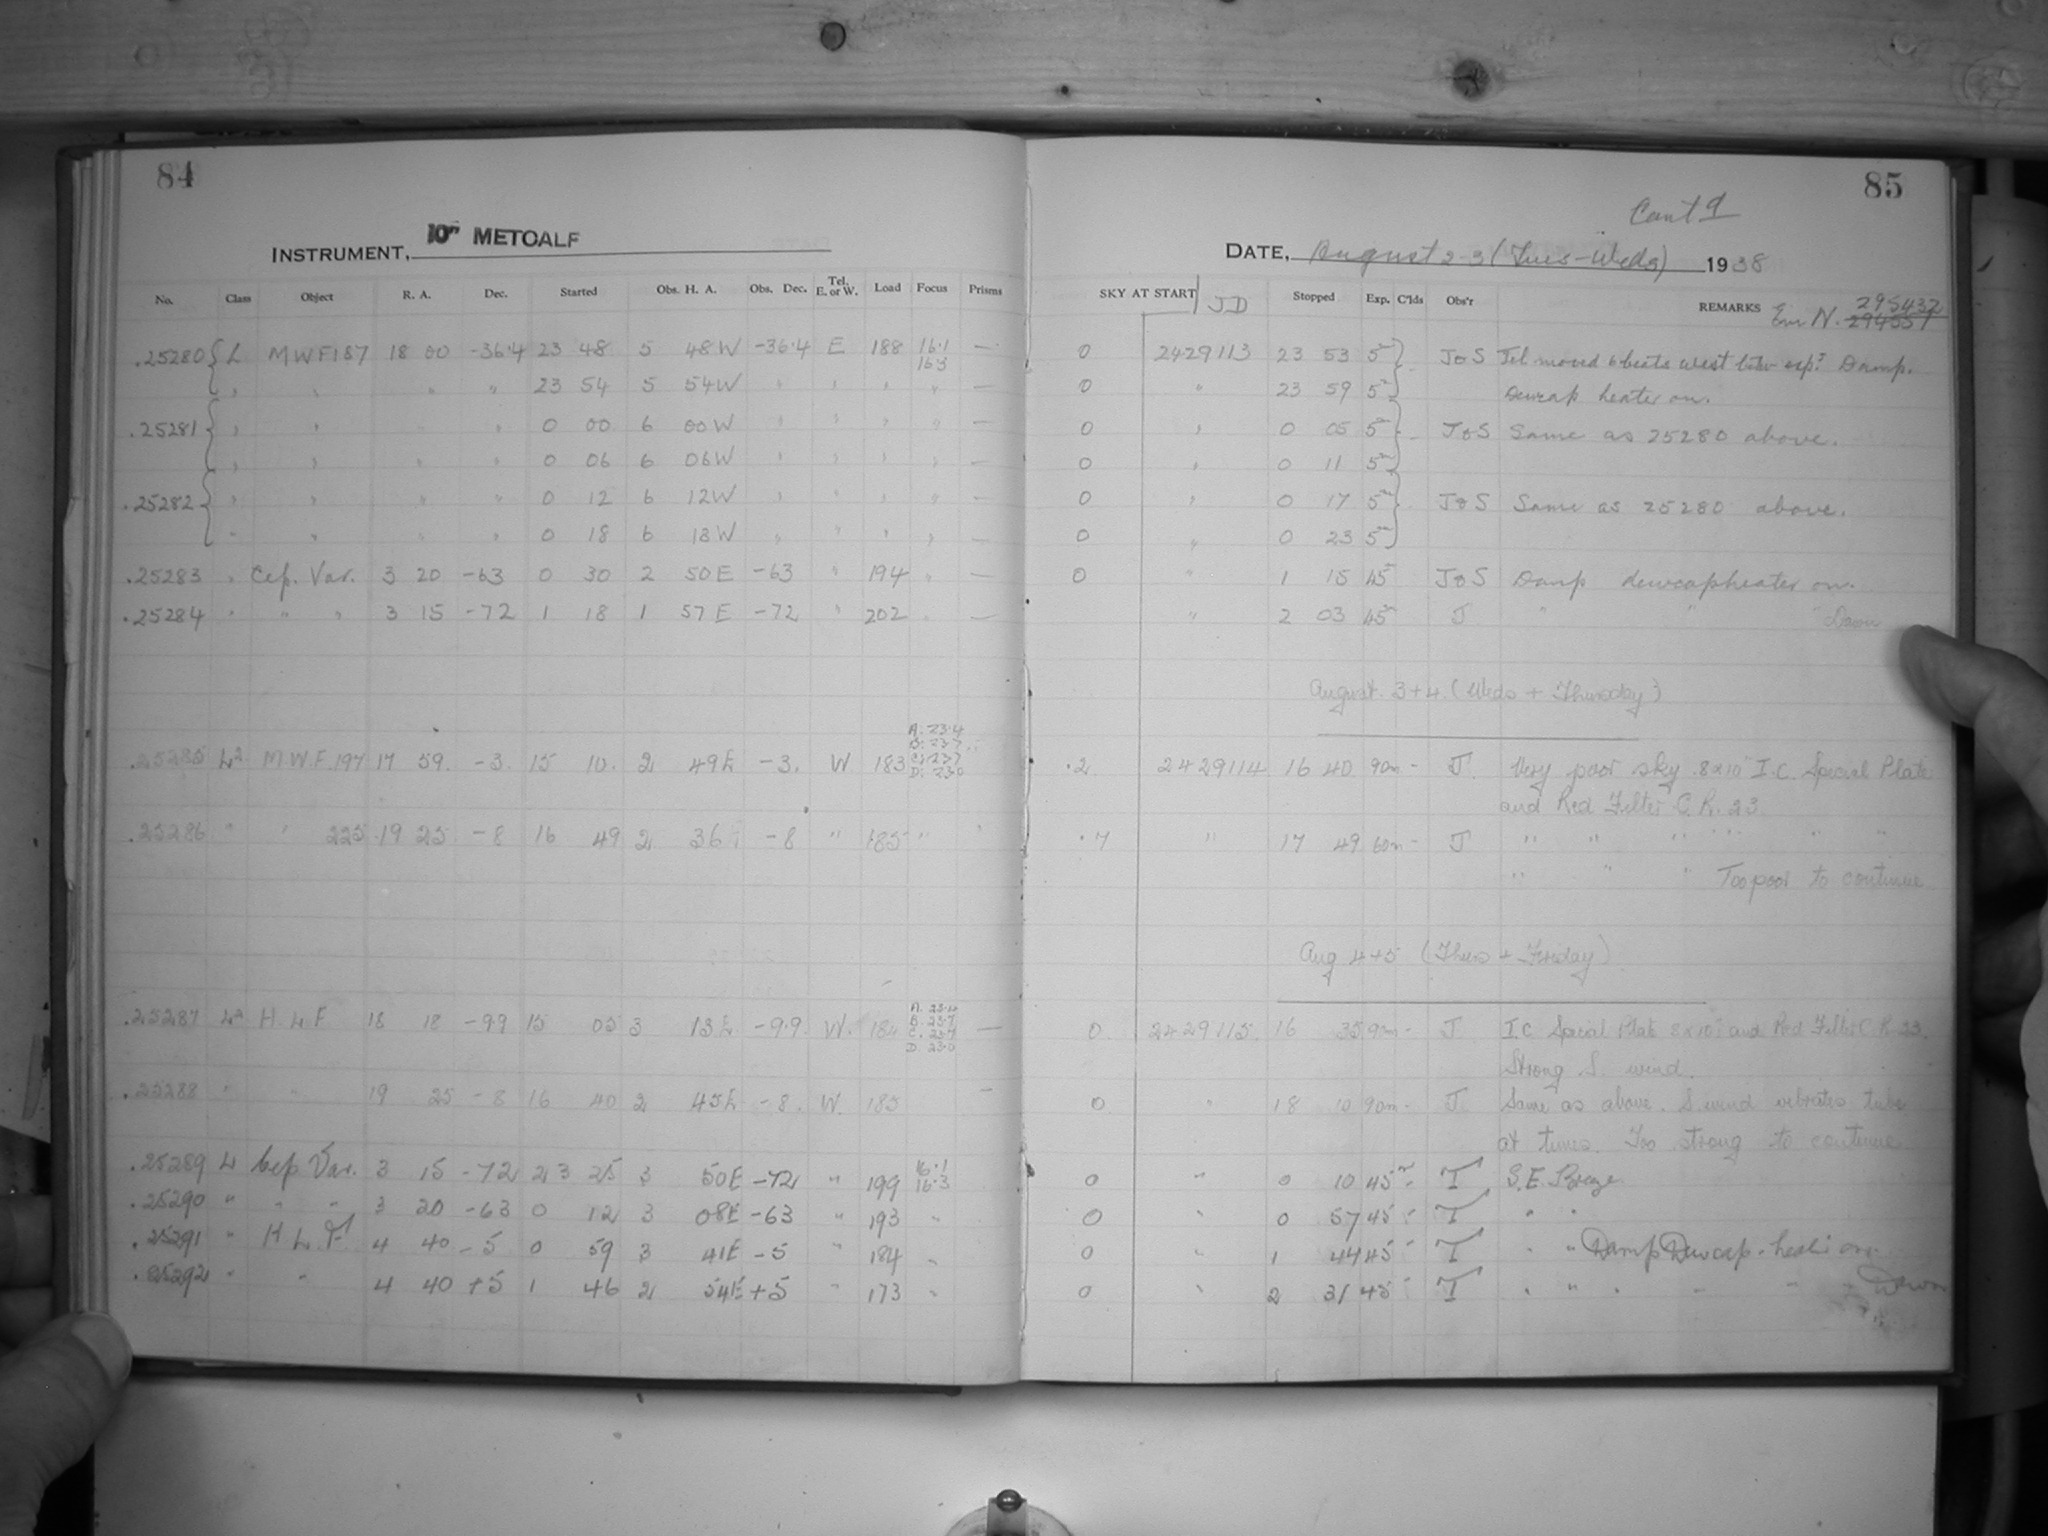 84
INSTRUMENT, 10" METCALF
No. Class Object R. A. Dec. Started Obs. H. A. Obs. Dec. Tel. E. or W. Load Focus Prisms
.25280 L MWF187 18 00 -36.4 23 48 5 48W -36.4 E 188 16.1 16.3 —
" " " " 23 54 5 54W " " " " —
.25281 " " " " 0 00 6 00W " " " "
" " " " 0 06 6 06W " " " " —
.25282 " " " " 0 12 6 12W " " " " —
" " " " 0 18 6 18W " " " " —
.25283 " Cep. Var. 3 20 -63 0 30 2 50E -63 " 194 " —
.25284 " " " 3 15 -72 1 18 1 57E -72 " 202 " —
.25285 L2 M.W.F. 197 17 59. -3. 15 10. 2 49E -3. W 183 A: 23.4 B: 23.7 C: 23.7 D: 23.0
.25286 " " 225 19 25 -8 16 49 2 36 -8 " 185 " "
.25287 L2 H L F 18 18 -9.9 15 05 3 13E -9.9 W. 184 A. 23.4 B. 23.7 C. 23.7 D. 23.0 —
.25288 " " 19 25 -8 16 40 2 45E -8. W. 185 —
.25289 L Cep. Var. 3 15 -72 23 25 3 50E -72 " 199 16.1 16.3
.25290 " " " 3 20 -63 0 12 3 08E -63 " 193 "
.25291 " H L F 4 40 -5 0 59 3 41E -5 " 184 "
.25292 " " 4 40 +5 1 46 2 54E +5 " 173 "
85
Cont'd
DATE, August 2-3 (Tues-Weds) 1938
SKY AT START JD Stopped Exp. C'lds Obs'r REMARKS Em N. 295432 294551
0 2429113 23 53 5m J&S Tel moved 6 beats west betw exps. Damp.
0 " 23 59 5m Dewcap heater on.
0 " 0 05 5m J&S Same as 25280 above.
0 " 0 11 5m
0 " 0 17 5m J&S Same as 25280 above.
0 " 0 23 5m
0 " 1 15 45m J&S Damp dewcapheater on.
" 2 03 45m J " " " Dawn
August. 3+4. (Weds + Thursday)
.2 2429114 16 40 90m - J. Very poor sky. 8x10" I.C. Special Plate
and Red Filter C.R. 23.
.7 " 17 49 60m - J " " " " " "
" " " Too poor to continue
Aug 4+5 (Thurs + Friday)
0. 2429115. 16 35 90m - J I.C. Special Plate 8x10" and Red Filter C.R. 23.
Strong S. wind.
0 " 18 10 90m - J Same as above. S. wind vibrates tube
at times. Too strong to continue
0 " 0 10 45m - T S.E. Breeze
0 " 0 57 45 - T " "
0 " 1 44 45 - T " " Damp Dewcap-heater on.
0 " 2 31 45 - T " " " " " Dawn